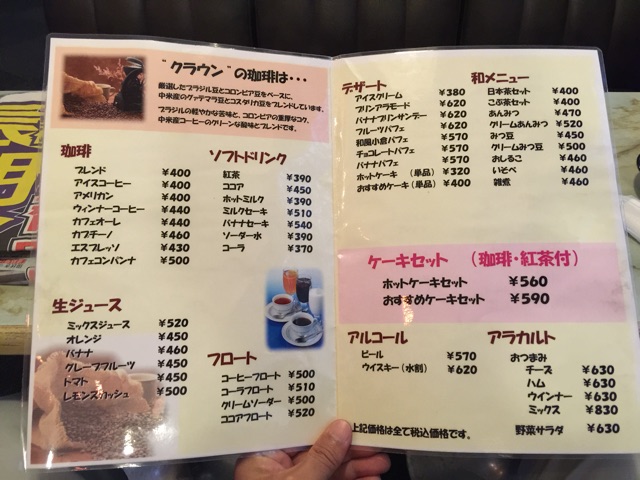 “クラウン”の珈琲は・・・
厳選したブラジル豆とコロンビア豆をベースに、
中米産のグァテマラ豆とコスタリカ豆をブレンドしています。
ブラジルの軽やかな苦味と、コロンビアの重厚なコク、
中米産コーヒーのクリーンな酸味とブレンドです。
珈琲
ブレンド ¥400
アイスコーヒー ¥400
アメリカン ¥400
ウィンナーコーヒー ¥440
カフェオーレ ¥440
カプチーノ ¥460
エスプレッソ ¥430
カフェコンパンナ ¥500
生ジュース
ミックスジュース ¥520
オレンジ ¥450
バナナ ¥460
グレープフルーツ ¥450
トマト ¥450
レモンスカッシュ ¥500
ソフトドリンク
紅茶 ¥390
ココア ¥450
ホットミルク ¥390
ミルクセーキ ¥510
バナナセーキ ¥540
ソーダー水 ¥390
コーラ ¥370
フロート
コーヒーフロート ¥500
コーラフロート ¥510
クリームソーダー ¥500
ココアフロート ¥520
デザート
アイスクリーム ¥380
プリンアラモード ¥620
バナナプリンサンデー ¥620
フルーツパフェ ¥620
和風小倉パフェ ¥570
チョコレートパフェ ¥570
バナナパフェ ¥570
ホットケーキ (単品) ¥320
おすすめケーキ(単品) ¥400
和メニュー
日本茶セット ¥400
こぶ茶セット ¥400
あんみつ ¥470
クリームあんみつ ¥520
みつ豆 ¥450
クリームみつ豆 ¥500
おしるこ ¥460
いそべ ¥460
雑煮 ¥460
ケーキセット (珈琲・紅茶付)
ホットケーキセット ¥560
おすすめケーキセット ¥590
アルコール
ビール ¥570
ウイスキー(水割) ¥620
アラカルト
おつまみ
チーズ ¥630
ハム ¥630
ウインナー ¥630
ミックス ¥830
野菜サラダ ¥630
上記価格は全て税込価格です。